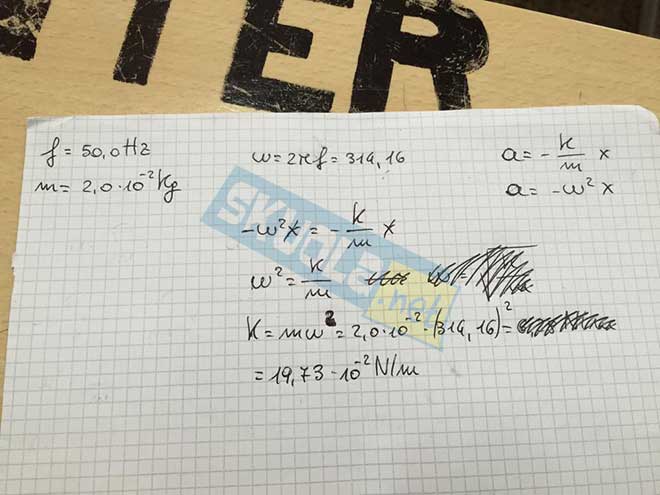 NTER
f = 50,0 Hz
m = 2,0·10⁻² Kg
ω = 2πf = 314,16
a = - k/m x
a = -ω² x
-ω²x = - k/m x
ω² = k/m
K = mω² = 2,0·10⁻² · (314,16)² =
= 19,73 · 10⁻² N/m
skuola.net